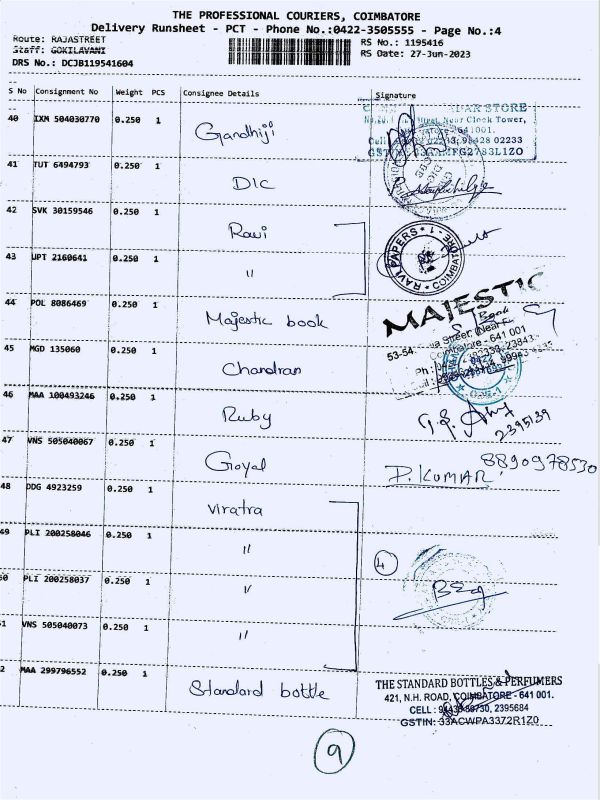 THE PROFESSIONAL COURIERS, COIMBATORE
Delivery Runsheet - PCT - Phone No.:0422-3505555 - Page No.:4
Route: RAJASTREET
Staff: GOKILAVANI
DRS No.: DCJB119541604
RS No.: 1195416
RS Date: 27-Jun-2023
S No Consignment No Weight PCS Consignee Details Signature
40 IXM 504030770 0.250 1 Gandhiji
STORE
Clock Tower,
641001.
98428 02233
41 TUT 6494793 0.250 1 DIC
42 SVK 30159546 0.250 1 Ravi
RAVI PAPERS * COIMBATORE - 1 *
43 UPT 2160641 0.250 1 "
44 POL 8086469 0.250 1 Majestic book
MAJESTIC
Book
53-54, Street, (Near
Coimbatore - 641 001
45 MGD 135060 0.250 1 Chandran
46 MAA 100493246 0.250 1 Ruby
2395139
47 VNS 505040067 0.250 1 Goyal
D. KUMAR 8890978530
48 DDG 4923259 0.250 1 Viratra
49 PLI 200258046 0.250 1 "
4
50 PLI 200258037 0.250 1 "
51 VNS 505040073 0.250 1 "
52 MAA 299796552 0.250 1 Standard bottle
THE STANDARD BOTTLES & PERFUMERS
421, N.H. ROAD, COIMBATORE - 641 001.
CELL : 2395684
GSTIN: 33ACWPA3372R1Z0
9